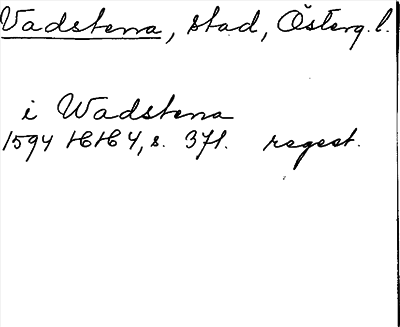 Vadstena, stad, Österg.l.
i Wadstena
1594 HH 4, s. 371. regest.